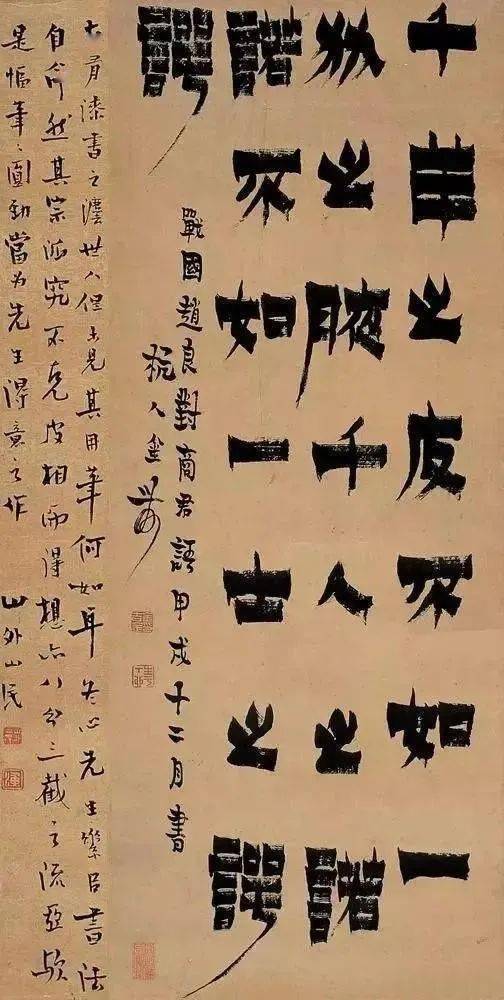 千羊之皮不如一
狐之腋千人之諾
諾不如一士之諤
諤
戰國趙良對商君語甲戌十二月書
杭人金農
古有漆書之灋世人但未見其用筆何如耳冬心先生書法
自命然其宗派究不克皮相而得想亦八分三截之流亞歟
是幅筆筆圓勁當为先生得意之作
山外山民